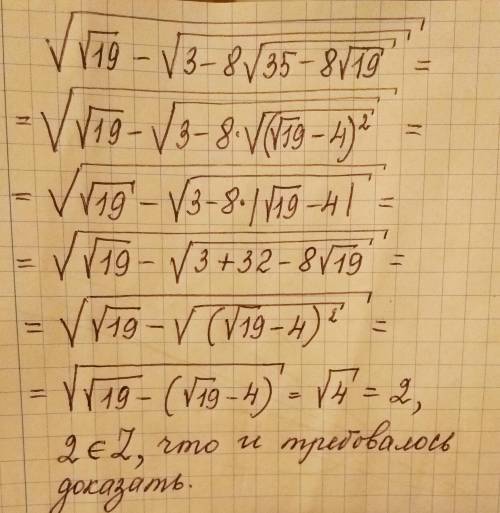 √(√19 − √(3 − 8√(35 − 8√19))) =
= √(√19 − √(3 − 8·√((√19 − 4)²))) =
= √(√19 − √(3 − 8·|√19 − 4|)) =
= √(√19 − √(3 + 32 − 8√19)) =
= √(√19 − √((√19 − 4)²)) =
= √(√19 − (√19 − 4)) = √4 = 2,
2 ∈ Z, что и требовалось
доказать.